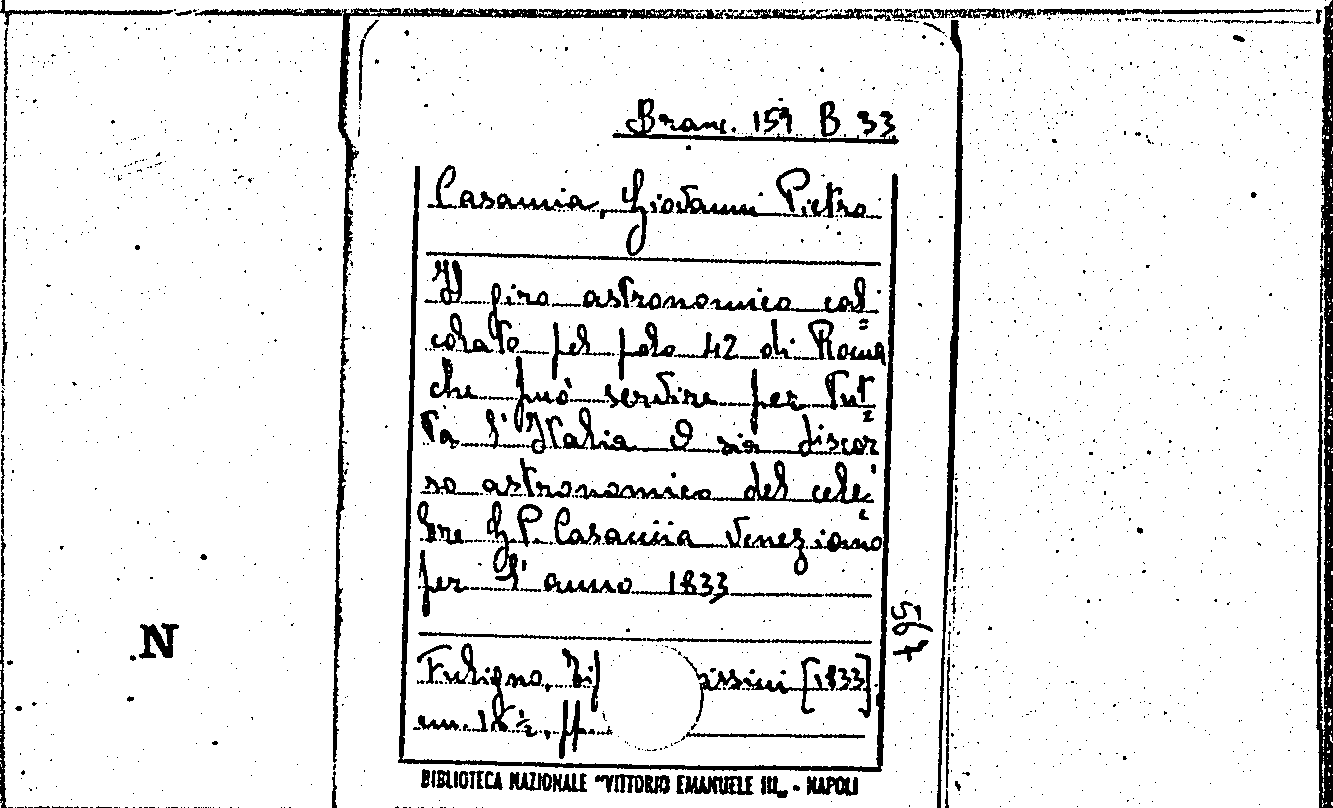 Branc. 159 B 33
Casamia, Giovanni Pietro
Il giro astronomico cal=
colato pel polo 42 di Roma
che può servire per tut=
ta l'Italia O sia discor
so astronomico del cele=
bre G. P. Casamia Veneziano
per l'anno 1833
567
N
Fuligno, Ti ssini [1833]
cm. 18½, pp.
BIBLIOTECA NAZIONALE "VITTORIO EMANUELE III„ - NAPOLI